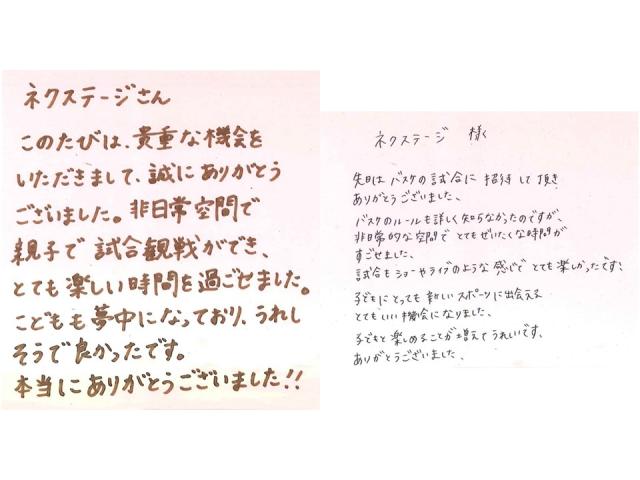 ネクステージさん
このたびは、貴重な機会を
いただきまして、誠にありがとう
ございました。非日常空間で
親子で試合観戦ができ、
とても楽しい時間を過ごせました。
こどもも夢中になっており、うれし
そうで良かったです。
本当にありがとうございました!!
ネクステージ 様
先日は バスケの試合に 招待して頂き
ありがとうございました、
バスケのルールも詳しく知らなかったのですが、
非常的な空間で とてもぜいたくな時間が
すごせました、
試合もショーやライブのような感じで とても楽しかったです!
子どもにとっても 新しいスポーツに出会える
とてもいい機会になりました、
子どもと楽しめることが増えてうれしいです、
ありがとうございました、